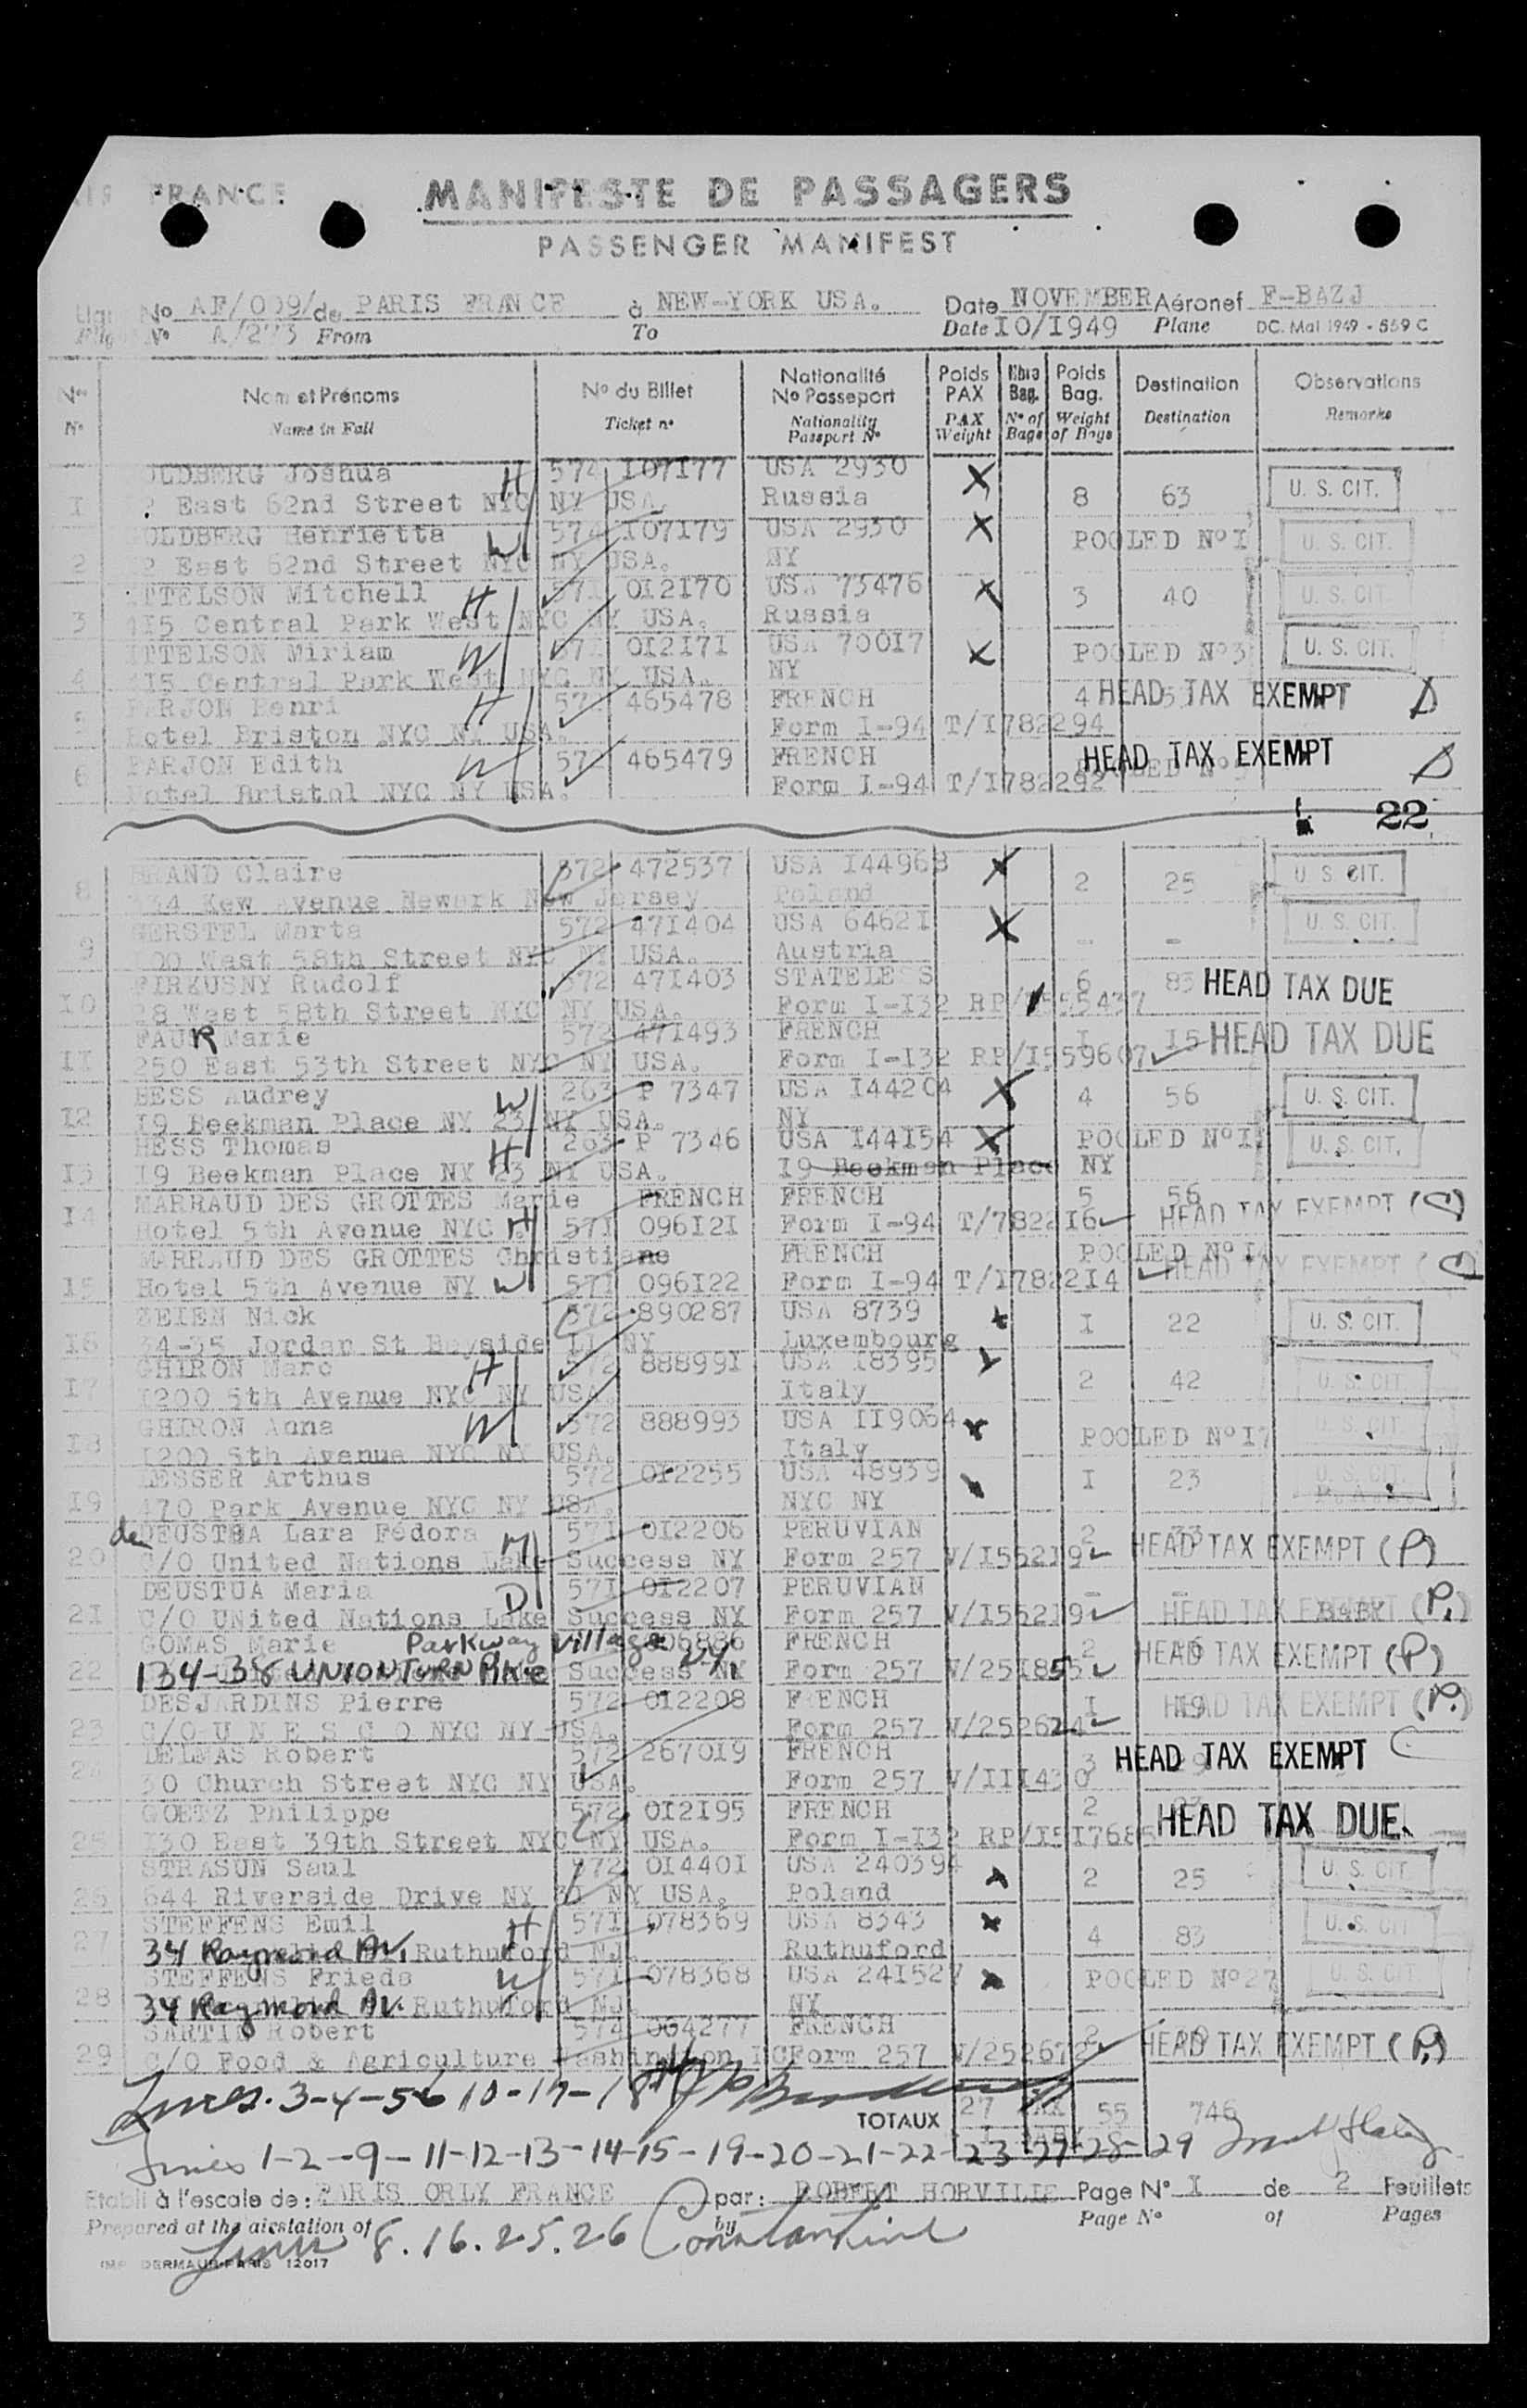 FRANCE
MANIFESTE DE PASSAGERS
PASSENGER MANIFEST
No AF/009/ de PARIS FRANCE à NEW-YORK USA. Date NOVEMBER Aéronef F-BAZJ
No From To Date IO/I949 Plane DC. Mai 1949 - 559 C
Nos Nom et Prénoms No du Billet Nationalité No Passeport Poids PAX Nbre Bag. Poids Bag. Destination Observations
No Name in Full Ticket no Nationality Passport No PAX Weight No of Bags Weight of Bags Destination Remarks
OLDBERG Joshua H 574 I07I77 USA 2930 X
I 2 East 62nd Street NYC NY USA. Russia 8 63 U. S. CIT.
OLDBERG Henrietta W 574 I07I79 USA 2930 X
2 2 East 62nd Street NYC NY USA. NY POOLED NoI U. S. CIT.
ITTELSON Mitchell H 57I 0I2I70 USA 73476 X
3 4I5 Central Park West NYC NY USA. Russia 3 40 U. S. CIT.
ITTELSON Miriam W 0I2I7I USA 700I7 X
4 4I5 Central Park West NYC NY USA. NY POOLED No3 U. S. CIT.
5 FARJON Henri H 572 465478 FRENCH 4 HEAD TAX EXEMPT
Hotel Briston NYC NY USA. Form I-94 T/I782294
6 FARJON Edith W 572 465479 FRENCH HEAD TAX EXEMPT
Hotel Bristol NYC NY USA. Form I-94 T/I782292
22
8 BRAND Claire 572 472537 USA I44968 X 2 25 U. S. CIT.
Kew Avenue Newark New Jersey Poland
GERSTEL Marta 572 47I404 USA 6462I X U. S. CIT.
9 West 58th Street NYC NY USA. Austria - -
FIRKUSNY Rudolf 572 47I403 STATELESS 6 83 HEAD TAX DUE
I0 28 West 58th Street NYC NY USA. Form I-I32 RP/I555437
FAUR Marie 572 47I493 FRENCH I I5 HEAD TAX DUE
II 250 East 53th Street NYC NY USA. Form I-I32 RP/I559607
HESS Audrey W 263 P 7347 USA I44204 X 4 56 U. S. CIT.
I2 I9 Beekman Place NY 23 NY USA. NY
HESS Thomas H 263 P 7346 USA I44I54 X POOLED NoI U. S. CIT.
I3 I9 Beekman Place NY 23 NY USA. I9 Beekman Place NY
MARRAUD DES GROTTES Marie FRENCH FRENCH 5 56
I4 Hotel 5th Avenue NYC H 57I 096I2I Form I-94 T/7822I6 HEAD TAX EXEMPT (C)
MARRAUD DES GROTTES Christiane FRENCH POOLED NoI
I5 Hotel 5th Avenue NY W 57I 096I22 Form I-94 T/I7822I4 HEAD TAX EXEMPT (C)
ZEIEN Nick 572 890287 USA 8739 x I 22 U. S. CIT.
I6 34-35 Jordan St Bayside NY Luxembourg
GHIRON Marc H 572 88899I USA I8395 2 42 U. S. CIT.
I7 I200 5th Avenue NYC NY USA. Italy
GHIRON Anna W 572 888993 USA II9064 x POOLED NoI7 U. S. CIT.
I8 I200 5th Avenue NYC NY USA. Italy
LESSER Arthus 572 0I2255 USA 48939 x I 23 U. S. CIT.
I9 470 Park Avenue NYC NY USA. NYC NY
de DEUSTUA Lara Fédora M 57I 0I2206 PERUVIAN 2 33
20 C/O United Nations Lake Success NY Form 257 V/I552I9 HEAD TAX EXEMPT (P)
DEUSTUA Maria D 57I 0I2207 PERUVIAN - -
2I C/O UNited Nations Lake Success NY Form 257 V/I552I9 HEAD TAX EXEMPT BABY (P.)
GOMAS Marie Parkway Village N.Y. FRENCH 2
22 134-38 UNION TURN PIKE Success NY Form 257 V/25I855 HEAD TAX EXEMPT (P)
DESJARDINS Pierre 572 0I2208 FRENCH I I9
23 C/O U N E S C O NYC NY USA. Form 257 V/252624 HEAD TAX EXEMPT (P.)
DELMAS Robert 572 2670I9 FRENCH 3 29 HEAD TAX EXEMPT
24 30 Church Street NYC NY USA. Form 257 V/III430
GOETZ Philippe 572 0I2I95 FRENCH 2 HEAD TAX DUE
25 I30 East 39th Street NYC NY USA. Form I-I32 RP/I5I7685
STRASUN Saul 572 0I440I USA 240394 x 2 25 U. S. CIT.
26 644 Riverside Drive NY NY USA. Poland
STEFFENS Emil H 57I 078369 USA 8343 x 4 83 U. S. CIT.
27 34 Raymond Av. Ruthuford NJ. Ruthuford
STEFFENS Frieda W 57I 078368 USA 24I527 x POOLED No27 U. S. CIT.
28 34 Raymond Av. Ruthuford NJ. NY
SARTIN Robert 574 064277 FRENCH 2
29 C/O Food & Agriculture Washington DC Form 257 V/252672 HEAD TAX EXEMPT (P.)
Lines. 3-4-5-6 10-17-18
TOTAUX 27 PAX 55 746
I BABY
Lines 1-2-9-11-12-13-14-15-19-20-21-22-23-27-28-29
Etabli à l'escale de: PARIS ORLY FRANCE par: ROBERT HORVILLE Page No I de 2 Feuillets
Prepared at the airstation of by Page No of Pages
Lines 8. 16. 25. 26 Constantine
IMP. DERMAUX PARIS 12017